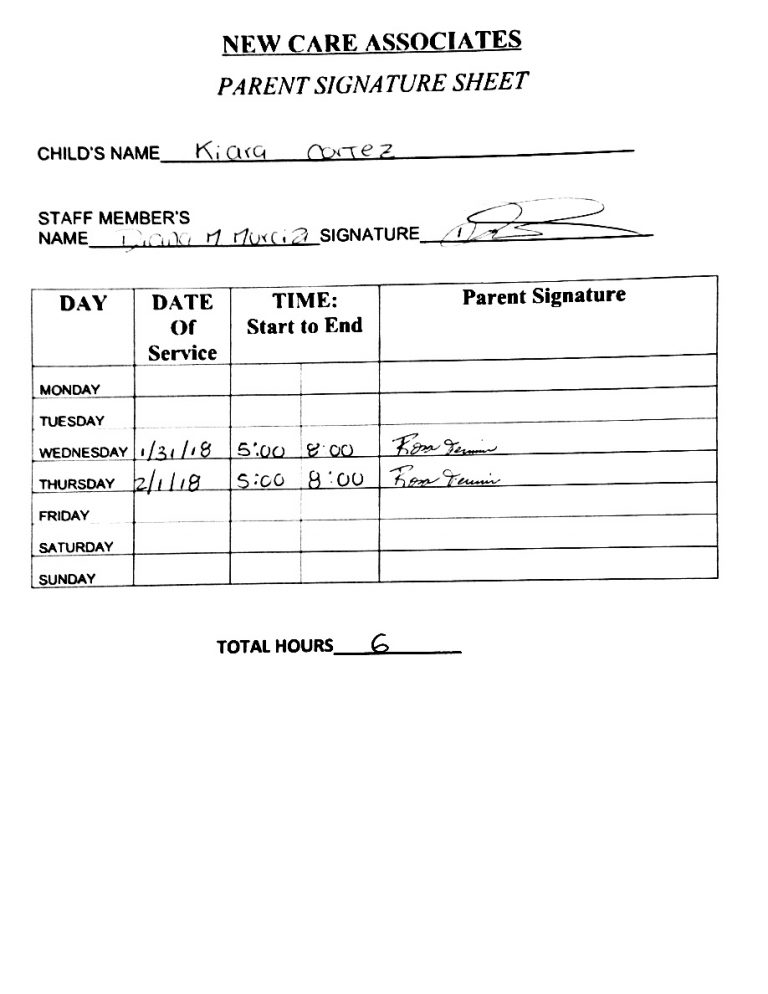 NEW CARE ASSOCIATES
PARENT SIGNATURE SHEET
CHILD'S NAME Kiara Cortez
STAFF MEMBER'S
NAME Diana M Murcia SIGNATURE
DAY DATE Of Service TIME: Start to End Parent Signature
MONDAY
TUESDAY
WEDNESDAY 1/31/18 5:00 8:00
THURSDAY 2/1/18 5:00 8:00
FRIDAY
SATURDAY
SUNDAY
TOTAL HOURS 6